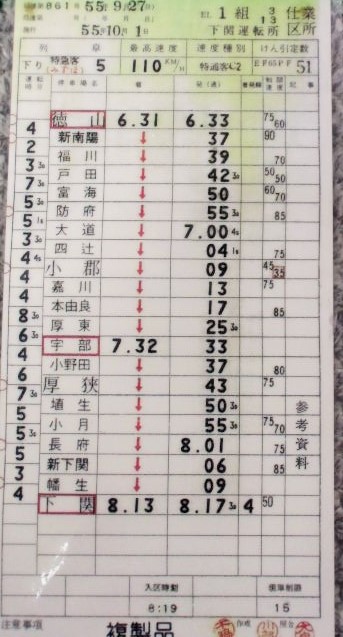 861 55.9/27() EL 1組 3/13 仕業
施行 55年10月1日 下関運転所 区所
列車 最高速度 速度種別 けん引定数
下り 特急客 (みずほ) 5 110KM/H 特通客C2 EF65PF 51
運転時分 停車場名 着 発(通) 着発線 制限速度 記事
徳山 6.31 6.33 75 60
4 新南陽 ↓ 37 90
2 福川 ↓ 39 70
3 30 戸田 ↓ 42 30 50 50
7 30 富海 ↓ 50 60 70
5 30 防府 ↓ 55 30 85
5 15 大道 ↓ 7.00 45
3 30 四辻 ↓ 04 15 75
4 45 小郡 ↓ 09 45 35
4 嘉川 ↓ 13 75
4 本由良 ↓ 17 85
8 30 厚東 ↓ 25 30
6 30 宇部 7.32 33
4 小野田 ↓ 37 80
6 厚狭 ↓ 43 75
7 30 埴生 ↓ 50 30
5 小月 ↓ 55 30 75 70
5 30 長府 ↓ 8.01 75
5 新下関 ↓ 06 85
3 幡生 ↓ 09
4 下関 8.13 8.17 30 4 50
参考資料
入区時刻
8:19 15
注意事項 複製品 作成 照合